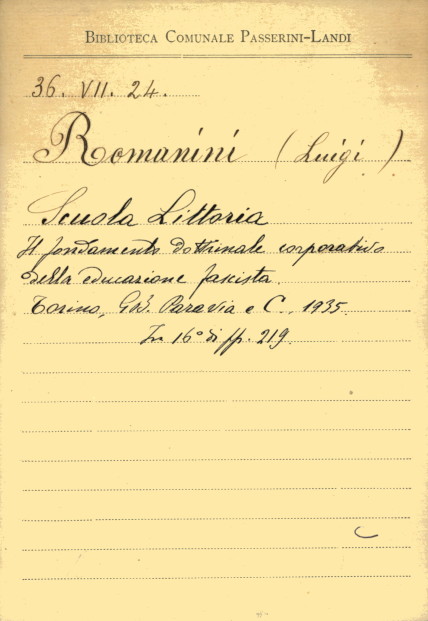 BIBLIOTECA COMUNALE PASSERINI-LANDI
36. VII. 24.
Romanini (Luigi)
Scuola Littoria
Il fondamento dottrinale corporativo
della educazione fascista.
Torino, G.B. Paravia e C., 1935
In 16° di pp. 219.